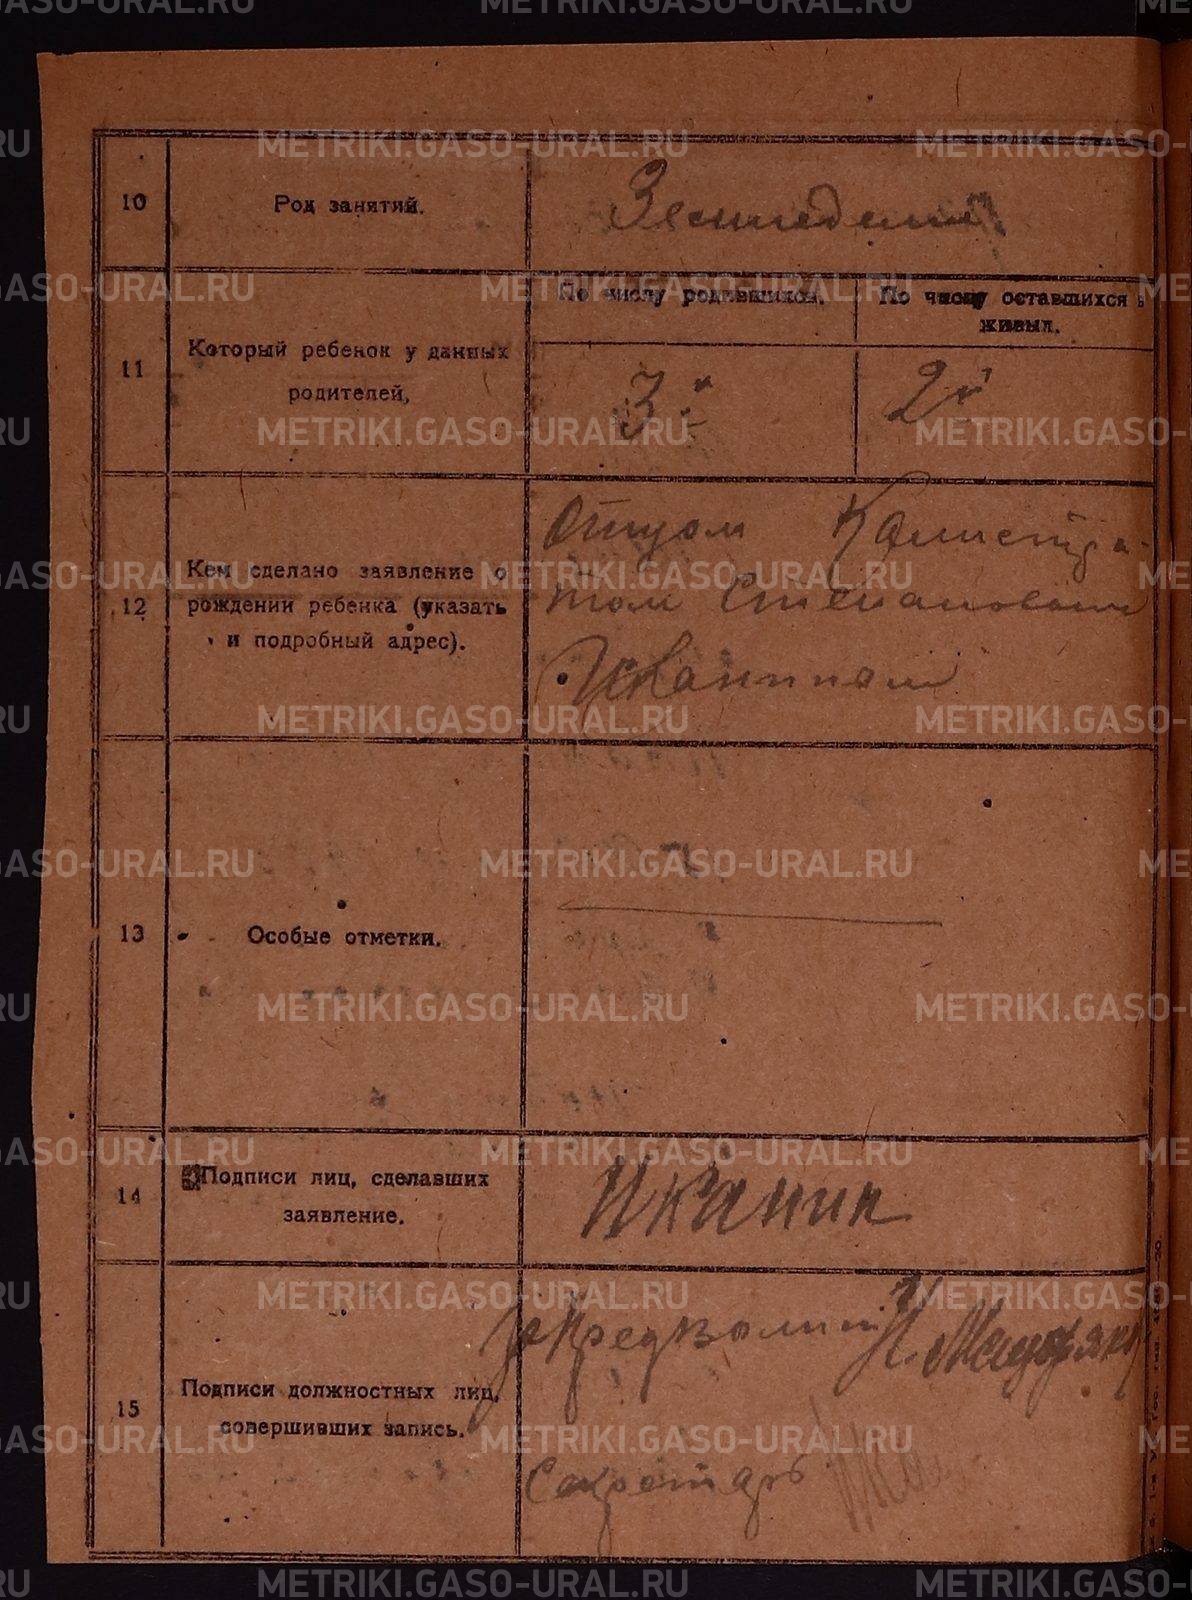 10
Род занятий.
Земледелие.
11
Который ребенок у данных
родителей,
По числу родившихся.
По числу оставшихся в
живых.
3й
2й
12
Кем сделано заявление о
рождении ребенка (указать
и подробный адрес).
Отцом Калистра-
том Степановичем
Иканиным
13
Особые отметки.
14
Подписи лиц, сделавших
заявление.
Иканин
15
Подписи должностных лиц,
совершивших запись.
Секретарь
METRIKI.GASO-URAL.RU